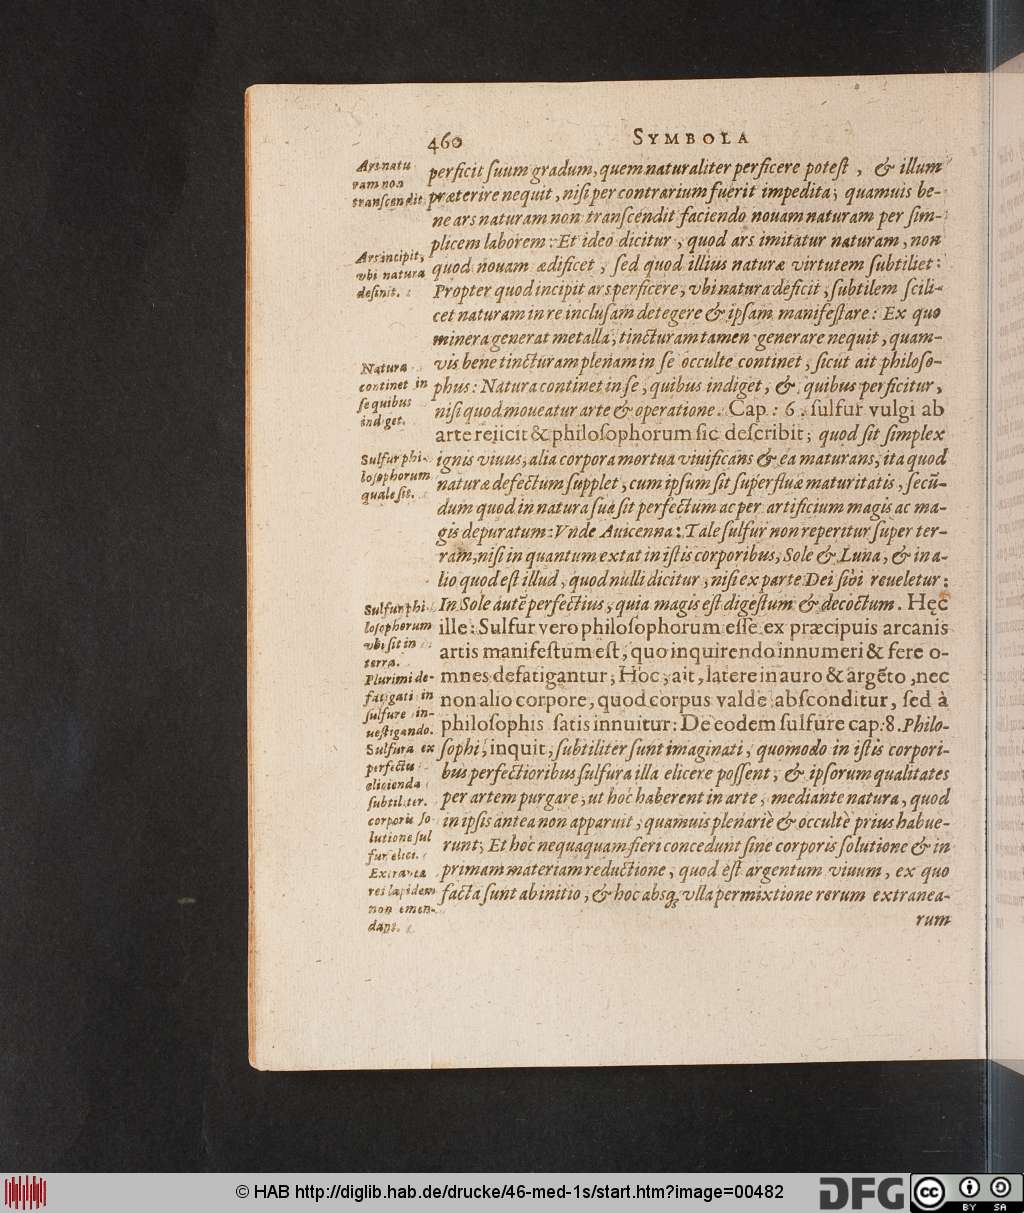 460 SYMBOLA
Ars natu
ram non
transcendit
Ars incipit,
vbi natura
desinit.
Natura
continet in
se quibus
indiget.
Sulfur phi-
losophorum
quale sit.
Sulfur phi
losophorum
vbi sit in
terra.
Plurimi de-
fatigati in
sulfure in-
uestigando.
Sulfura ex
perfectis
elicienda
subtiliter.
corporis so
lutione sul
fur elici.
Extranea
res lapidem
non emen-
dant.
perficit suum gradum, quem naturaliter perficere potest, & illum
præterire nequit, nisi per contrarium fuerit impedita; quamuis be-
ne ars naturam non transcendit faciendo nouam naturam per sim-
plicem laborem: Et ideo dicitur, quod ars imitatur naturam, non
quod nouam ædificet, sed quod illius naturæ virtutem subtiliet:
Propter quod incipit ars perficere, vbi natura deficit, subtilem scili-
cet naturam in re inclusam detegere & ipsam manifestare: Ex quo
minera generat metalla, tincturam tamen generare nequit, quam-
vis bene tincturam plenam in se occulte continet, sicut ait philoso-
phus: Natura continet in se, quibus indiget, & quibus perficitur,
nisi quod moueatur arte & operatione. Cap: 6. sulfur vulgi ab
arte reiicit & philosophorum sic describit; quod sit simplex
ignis viuus, alia corpora mortua viuificans & ea maturans, ita quod
naturæ defectum supplet, cum ipsum sit superfluæ maturitatis, secũ-
dum quod in natura sua sit perfectum ac per artificium magis ac ma-
gis depuratum: Vnde Auicenna: Tale sulfur non reperitur super ter-
ram, nisi in quantum extat in istis corporibus, Sole & Luna, & in a-
lio quod est illud, quod nulli dicitur, nisi ex parte Dei sibi reueletur:
In Sole autẽ perfectius, quia magis est digestum & decoctum. Hęc
ille: Sulfur vero philosophorum esse ex præcipuis arcanis
artis manifestum est, quo inquirendo innumeri & fere o-
mnes defatigantur; Hoc, ait, latere in auro & argẽto, nec
non alio corpore, quod corpus valde absconditur, sed à
philosophis satis innuitur: De eodem sulfure cap: 8. Philo-
sophi, inquit, subtiliter sunt imaginati, quomodo in istis corpori-
bus perfectioribus sulfura illa elicere possent, & ipsorum qualitates
per artem purgare, ut hoc haberent in arte, mediante natura, quod
in ipsis antea non apparuit, quamuis plenariè & occultè prius habue-
runt; Et hoc nequaquam fieri concedunt sine corporis solutione & in
primam materiam reductione, quod est argentum viuum, ex quo
facta sunt ab initio, & hoc absq; vlla permixtione rerum extranea-
rum
© HAB http://diglib.hab.de/drucke/46-med-1s/start.htm?image=00482
DFG
cc
BY SA